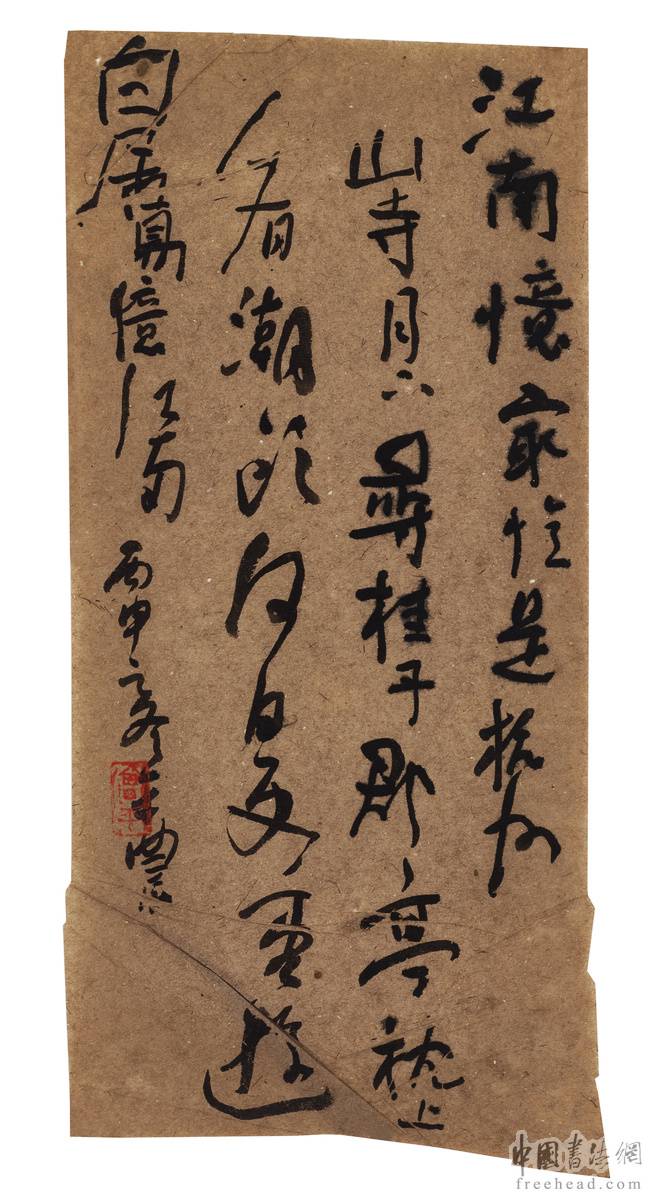 江南憶最憶是杭州
山寺月下尋桂子郡亭枕上
看潮頭何日更重遊
白居易憶江南 丙申
中国書法網
freehead.com